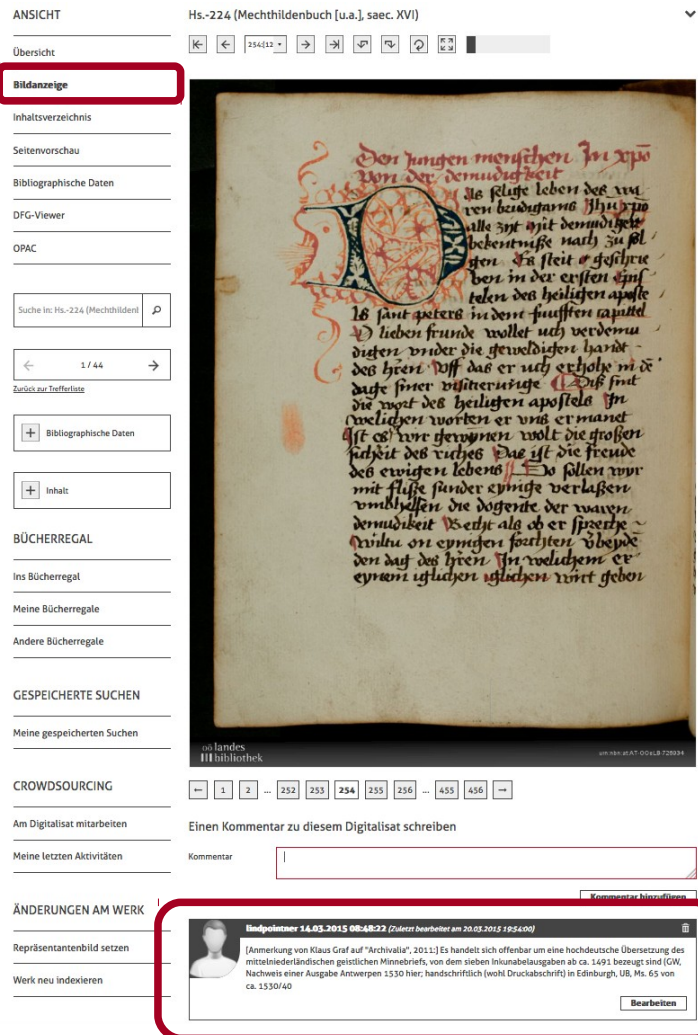 ANSICHT
Übersicht
Bildanzeige
Inhaltsverzeichnis
Seitenvorschau
Bibliographische Daten
DFG-Viewer
OPAC
Suche in: Hs.-224 (Mechthildenl
1 / 44
Zurück zur Trefferliste
Bibliographische Daten
Inhalt
BÜCHERREGAL
Ins Bücherregal
Meine Bücherregale
Andere Bücherregale
GESPEICHERTE SUCHEN
Meine gespeicherten Suchen
CROWDSOURCING
Am Digitalisat mitarbeiten
Meine letzten Aktivitäten
ÄNDERUNGEN AM WERK
Repräsentantenbild setzen
Werk neu indexieren
Hs.-224 (Mechthildenbuch [u.a.], saec. XVI)
254:[12
Den Jungen menschen In xpo
Von der demudigkeit
Das selige leben des wa
ren brudigams Jhu xpo
alle zyt mit
bekentniße nach zu fol
gen Es steit geschrie
ben in der ersten
telen des heiligen aposte
ls sant peters in dem fuufften capittel
O lieben frunde wollet uch verdemu
digen vnder die geweldigen handt
des hren Vff das er uch erhohe in
dage siner visitierunge Diß sint
die wort des heiligen apostels In
welichen worten er vns ermanet
Ist es wir gewynnen wolt die großen
des riches Das ist die freude
des ewigen lebens So sollen wyr
mit fliße sunder eynige verlaßen
die dogente der waren
demudikeit Recht als ob er spreche
Wiltu on eynigen forchten
den dag des hren In welichem er
eynem iglichen iglichen wirt geben
oö landes
bibliothek
urn:nbn:at:AT-OOeLB-726934
← 1 2 ... 252 253 254 255 256 ... 455 456 →
Einen Kommentar zu diesem Digitalisat schreiben
Kommentar
Kommentar hinzufügen
lindpointner 14.03.2015 08:48:22 (Zuletzt bearbeitet am 20.03.2015 19:54:00)
[Anmerkung von Klaus Graf auf "Archivalia", 2011:] Es handelt sich offenbar um eine hochdeutsche Übersetzung des
mittelniederländischen geistlichen Minnebriefs, von dem sieben Inkunabelausgaben ab ca. 1491 bezeugt sind (GW,
Nachweis einer Ausgabe Antwerpen 1530 hier; handschriftlich (wohl Druckabschrift) in Edinburgh, UB, Ms. 65 von
ca. 1530/40
Bearbeiten